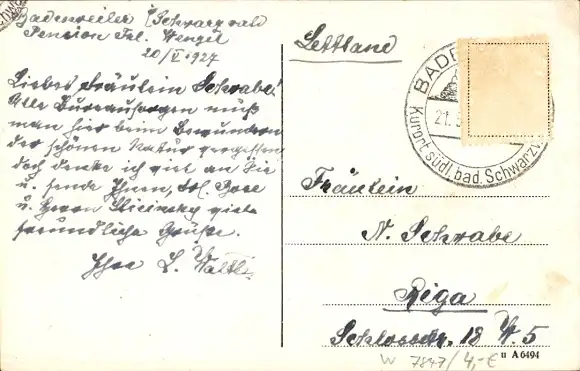 Badenweiler i/Schwarzwald
Pension Frl. Wengil
20/V 1927
Liebes Fräulein Schwabe!
Alle Bureausorgen muß
man hier beim Bewundern
der schönen Natur vergessen
doch denke ich viel an Sie
u. sende Ihnen, Frl. Bose
u. Herrn Slicinsky viele
freundliche Grüße.
Ihre L.
Lettland
BADE
21.5
Kurort südl. bad. Schwarzw.
Fräulein
N. Schwabe
Riga
Schlosstr. 18 W. 5
W 7847/4,-€
u A 6494